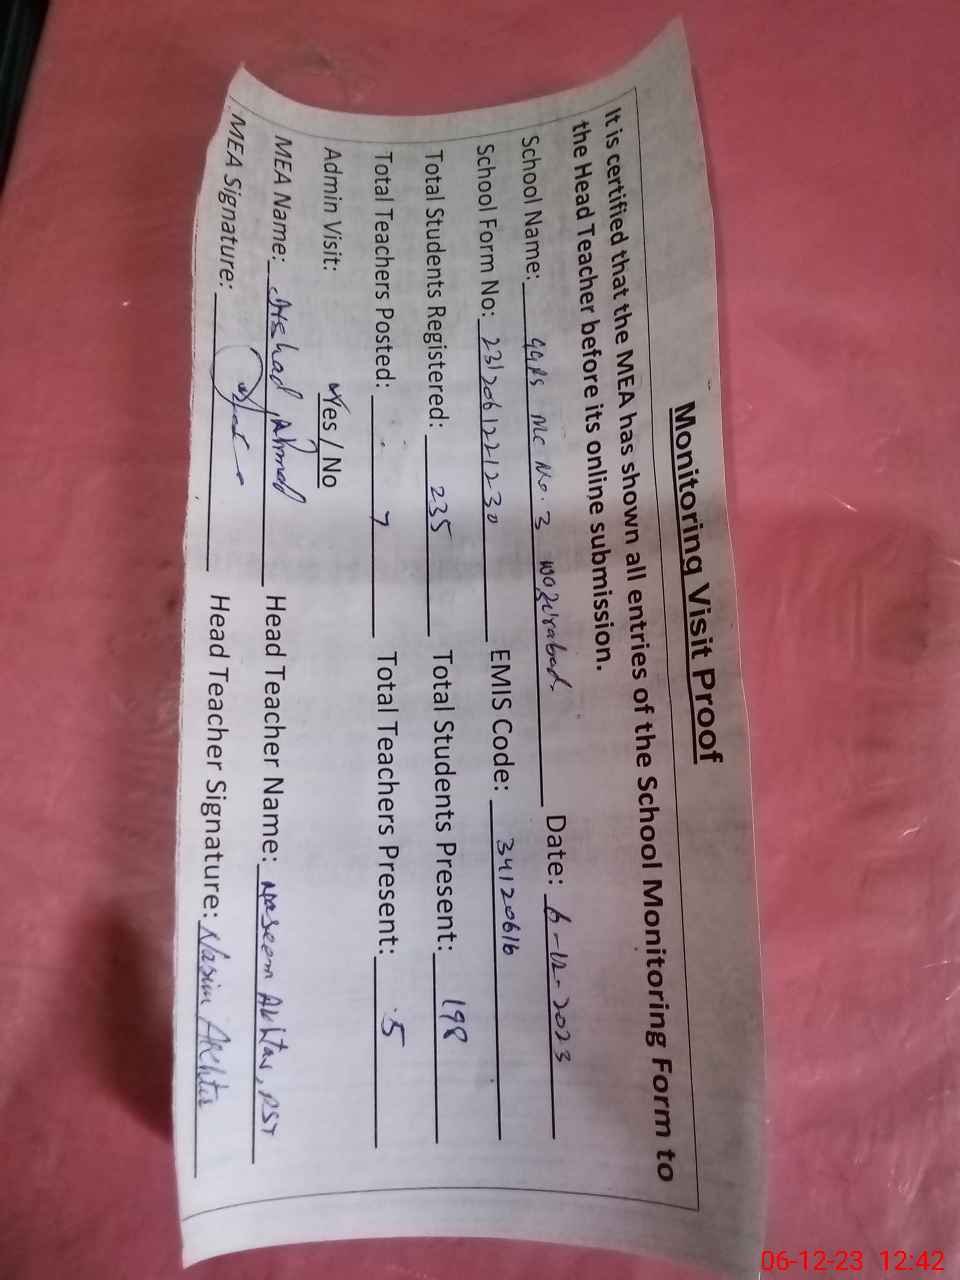 Monitoring Visit Proof
It is certified that the MEA has shown all entries of the School Monitoring Form to
the Head Teacher before its online submission.
School Name: GGPS MC No. 3 wazirabad. Date: 6-12-2023
School Form No: 2312061221230 EMIS Code: 34120616
Total Students Registered: 235 Total Students Present: 198
Total Teachers Posted: 7 Total Teachers Present: 5
Admin Visit: Yes / No
MEA Name: Arshad Ahmad Head Teacher Name: Naseem Akhtar, PST
MEA Signature: Head Teacher Signature: Nasim Akhtar
06-12-23 12:42